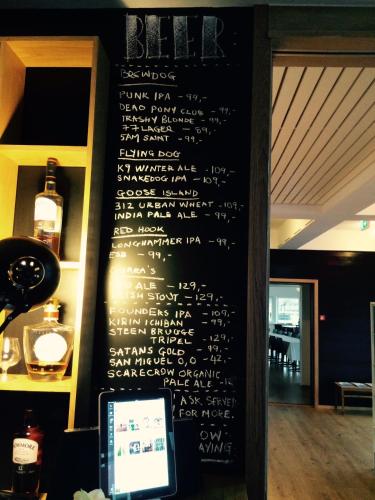 BEER
BREWDOG
PUNK IPA - 99,-
DEAD PONY CLUB - 99,-
TRASHY BLONDE - 99,-
77 LAGER - 89,-
5AM SAINT - 99,-
FLYING DOG
K9 WINTER ALE - 109,-
SNAKEDOG IPA - 109,-
GOOSE ISLAND
312 URBAN WHEAT - 109,-
INDIA PALE ALE - 99,-
RED HOOK
LONGHAMMER IPA - 99,-
ESB - 99,-
ALE - 129,-
STOUT - 129,-
FOUNDERS IPA - 109,-
KIRIN ICHIBAN - 99,-
STEEN BRUGGE
TRIPEL - 129,-
SATANS GOLD - 99,-
SAN MIGUEL 0,0 - 42,-
SCARECROW ORGANIC
PALE ALE
ASK SERVER
FOR MORE.
BOWMORE
12